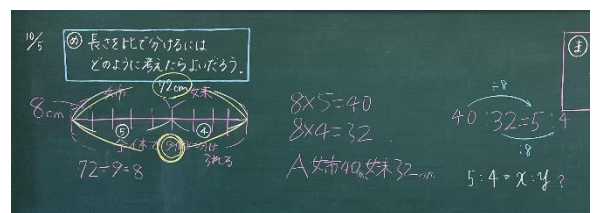 10/5
め 長さを比で分けるには
どのように考えたらよいだろう。
72cm
姉 妹
8cm
⑤ ④
全体で ⑨
72÷9=8
8×5=40
8×4=32
A 姉40cm 妹32cm
÷8
40:32=5:4
÷8
5:4=x:y?
ま